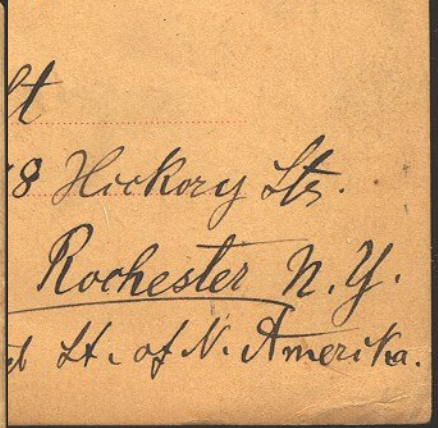 lt
8 Hickory Str.
Rochester N. Y.
St. of N. Amerika.